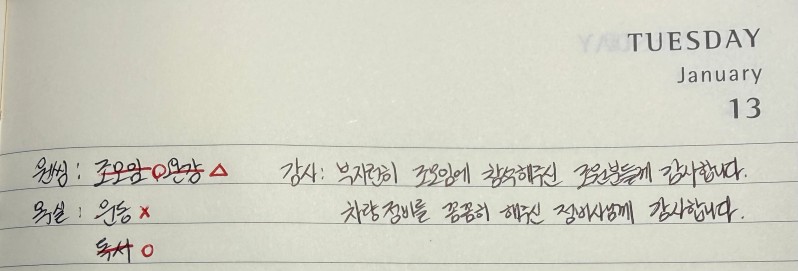 TUESDAY
January
13
원씽 : 조모임 O 인강 △ 감사 : 부지런히 조모임에 참석해주신 조원분들께 감사합니다.
욕실 : 운동 x 차량정비를 꼼꼼히 해주신 정비사님께 감사합니다.
독서 O